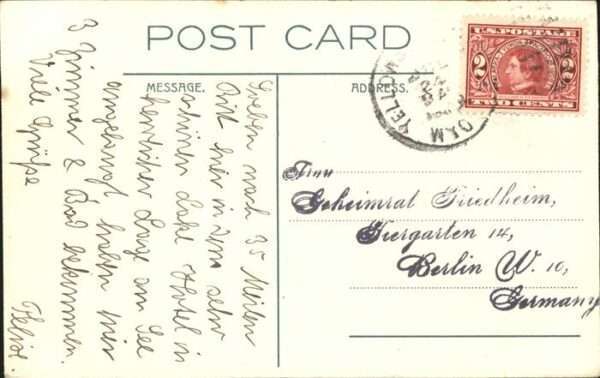 POST CARD
U.S. POSTAGE
2 2
TWO CENTS
MESSAGE.
ADDRESS.
Soeben nach 35 Meilen
Ritt hier in dem sehr
schönen Lake Hotel in
herrlicher Lage am See
angelangt haben wir
3 Zimmer & Bad bekommen.
Viele Grüße
Felix.
Frau
Geheimrat Friedheim,
Tiergarten 14,
Berlin W. 10,
Germany